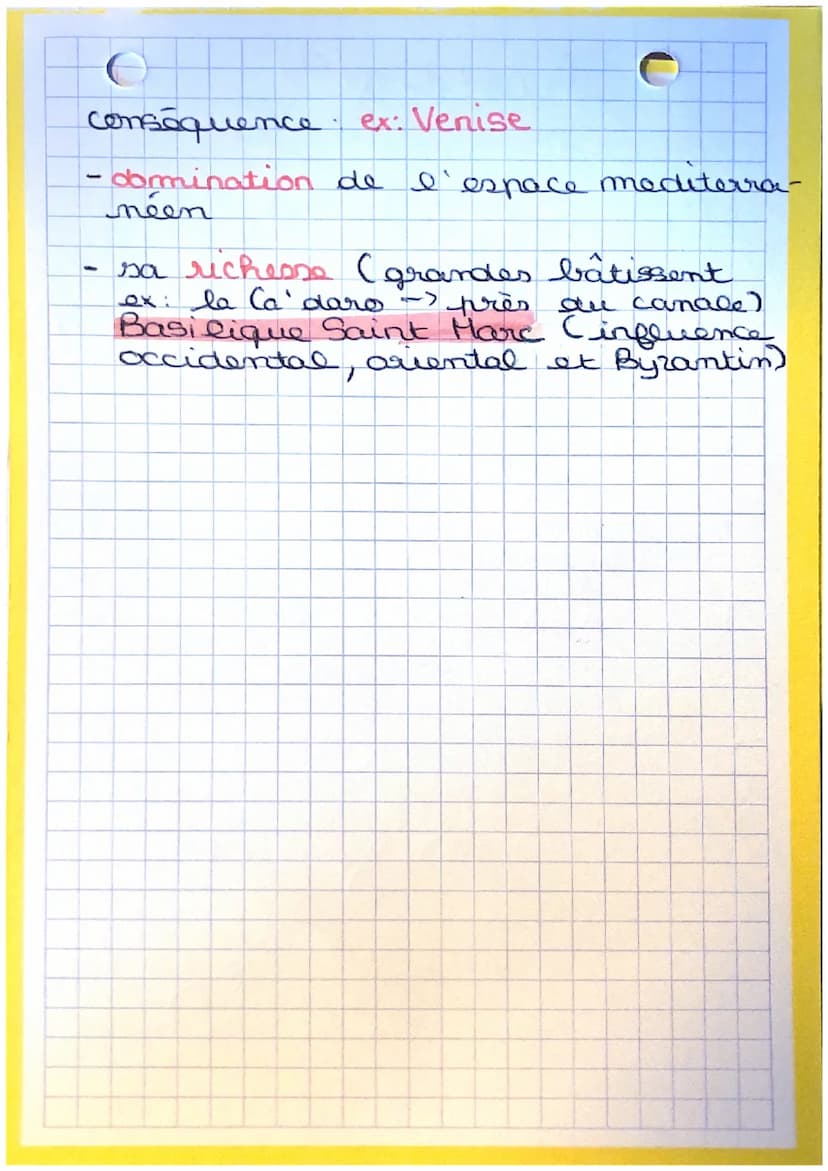 conséquence : ex: Venise
- domination de l'espace mediterra-
néen
- sa richesse (grandes bâtissent
ex: la Ca'daro -> près du canale)
Basilique Saint Marc (influence
occidental, oriental et Byzantin)